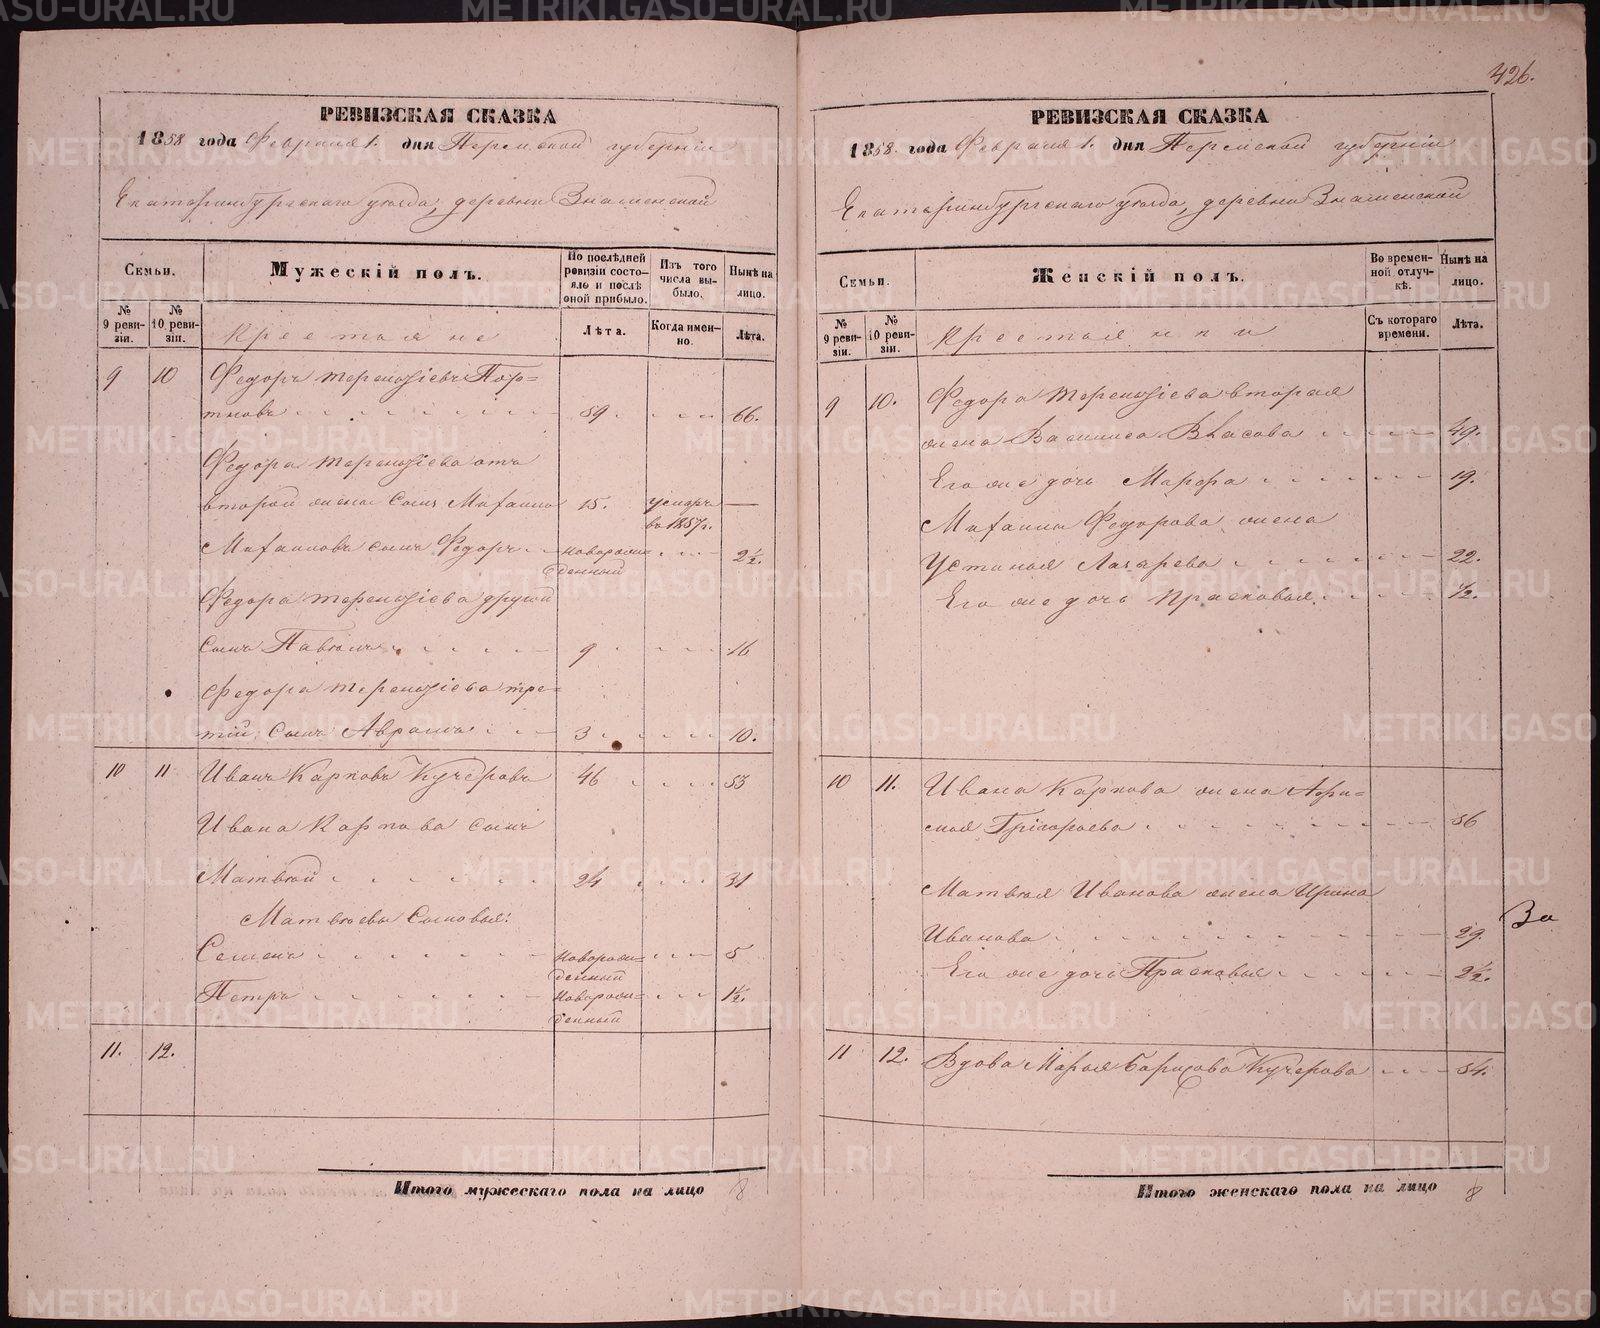 426.
РЕВИЗСКАЯ СКАЗКА
1858 года Февраля 1. дня Пермской губернiи
Екатеринбургскаго уѣзда, деревни Знаменской
Семьи.
Мужескiй полъ.
По послѣдней ревизiи состояло и послѣ оной прибыло.
Изъ того числа выбыло.
Нынѣ на лицо.
№ 9 ревизiи.
№ 10 ревизiи.
Крестьяне
Лѣта.
Когда именно.
Лѣта.
9 10 Федоръ Терентiевъ Пор=
тновъ 59 66.
Федора Терентiева отъ
второй жены сынъ Михаило 15. умеръ —
въ 1857 г.
Михаиловъ сынъ Федоръ новорож= 2½.
денный
Федора Терентiева другой
сынъ Павелъ 9 16
Федора Терентiева тре=
тiй сынъ Аврамъ 3 10.
10 11 Иванъ Карповъ Кучеровъ 46 53
Ивана Карпова сынъ
Матвѣй 24 31
Матвѣевы сыновья:
Семенъ новорож= 5
денный
Петръ новорож= 1½.
денный
11. 12.
Итого мужескаго пола на лицо 8
РЕВИЗСКАЯ СКАЗКА
1858 года Февраля 1. дня Пермской губернiи
Екатеринбургскаго уѣзда, деревни Знаменской
Семьи.
Женскiй полъ.
Во временной отлучкѣ.
Нынѣ на лицо.
№ 9 ревизiи.
№ 10 ревизiи.
Крестьянки
Съ котораго времени.
Лѣта.
9 10. Федора Терентiева вторая
жена Василиса Власова 49.
Его же дочь Марфа 19.
Михаила Федорова жена
Устинья Лазарева 22.
Его же дочь Прасковья ½.
10 11. Ивана Карпова жена Афи=
мья Григорьева 56
Матвѣя Иванова жена Ирина
Иванова 29.
Его же дочь Прасковья 2½.
За
11 12. Вдова Марья Борисова Кучерова 54.
Итого женскаго пола на лицо 8
METRIKI.GASO-URAL.RU